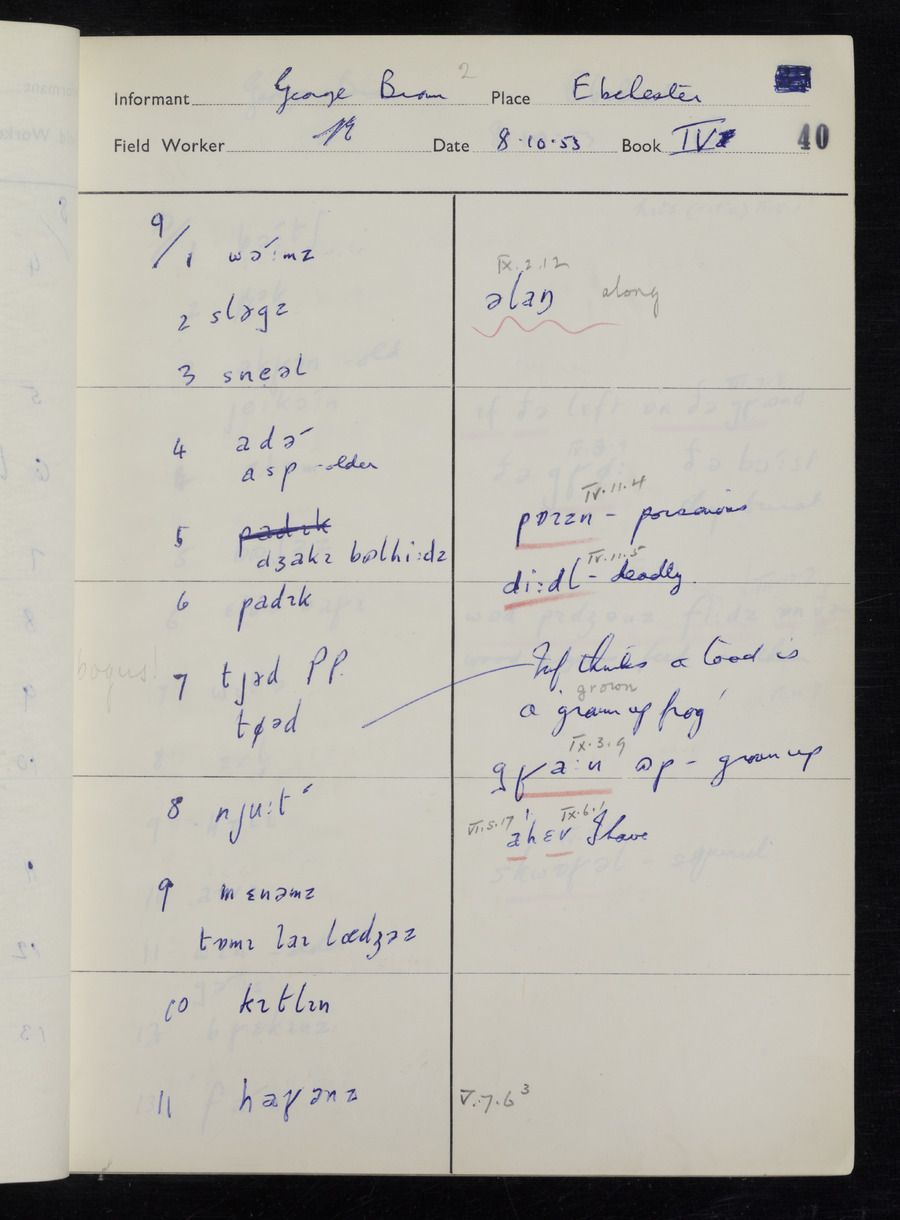 2
Informant George Brown Place Ebchester
Field Worker Date 8.10.53 Book IV 40
9/1 wɔ́:mz
IX.2.12
əlaŋ along
2 slɔgz
3 sneəl
4 adə́
asp - older
IV.11.4
pɒɪzn - poisonous
5 padɪk
dʒakɪ bəlhi:dz
IV.11.5
di:dl - deadly
6 padɪk
bogus!
7 tjəd PP.
tøəd
Inf thinks a toad is
grown
a 'grown up frog'
IX.3.9
gʁa:n əp - grown up
8 nju:t´
VI.5.17 IX.6.1
ahɛv I have
9 mɛnəmz
tɒmɪ laɪ lədʒəz
10 kɪtlɪn
11 haʁənz
V.7.6³